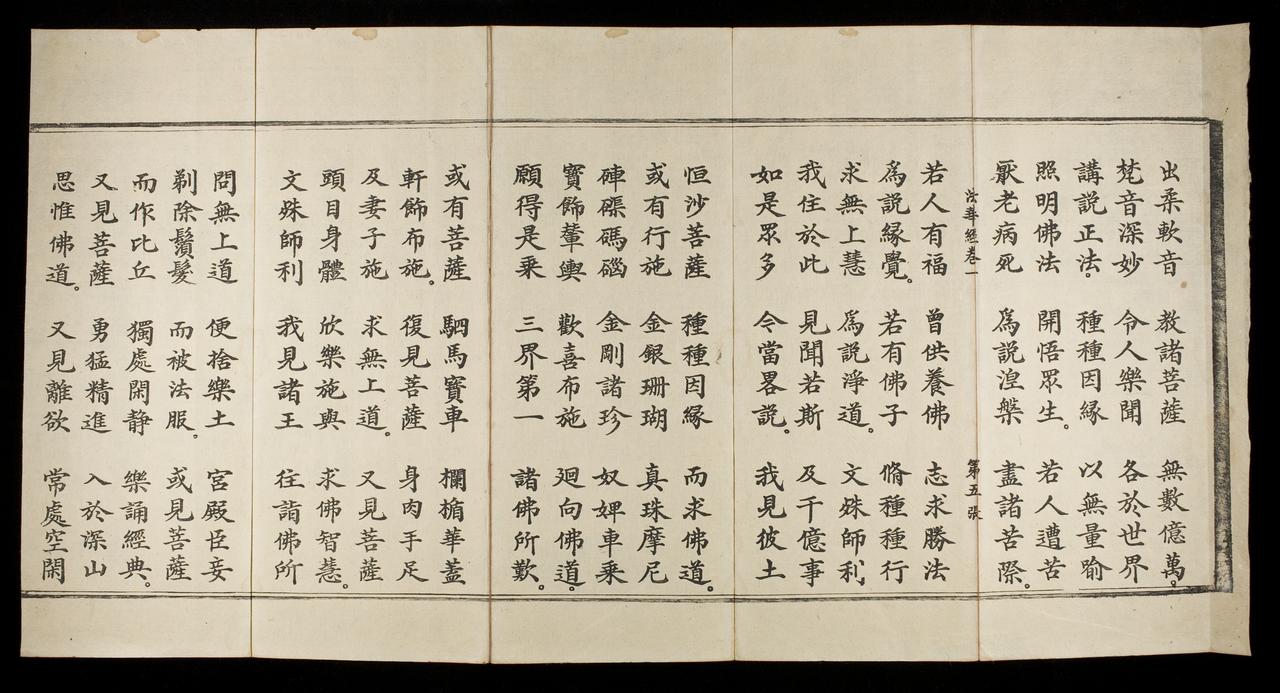 出柔軟音 教諸菩薩 無數億萬。
梵音深妙 令人樂聞 各於世界
講説正法。 種種因緣 以無量喻
照明佛法 開悟眾生。 若人遭苦
厭老病死 爲説涅槃 盡諸苦際。
法華經卷一 第五張
若人有福 曾供養佛 志求勝法
爲説緣覺。 若有佛子 脩種種行
求無上慧 爲説淨道。 文殊師利
我住於此 見聞若斯 及千億事
如是眾多 今當畧説。 我見彼土
恒沙菩薩 種種因緣 而求佛道。
或有行施 金銀珊瑚 真珠摩尼
硨磲碼碯 金剛諸珍 奴婢車乘
寶飾輦輿 歡喜布施 迴向佛道。
願得是乘 三界第一 諸佛所歎。
或有菩薩 駟馬寶車 欄楯華蓋
軒飾布施。 復見菩薩 身肉手足
及妻子施 求無上道。 又見菩薩
頭目身體 欣樂施與 求佛智慧。
文殊師利 我見諸王 往詣佛所
問無上道 便捨樂土 宮殿臣妾
剃除鬚髮 而被法服。 或見菩薩
而作比丘 獨處閑静 樂誦經典。
又見菩薩 勇猛精進 入於深山
思惟佛道。 又見離欲 常處空閑